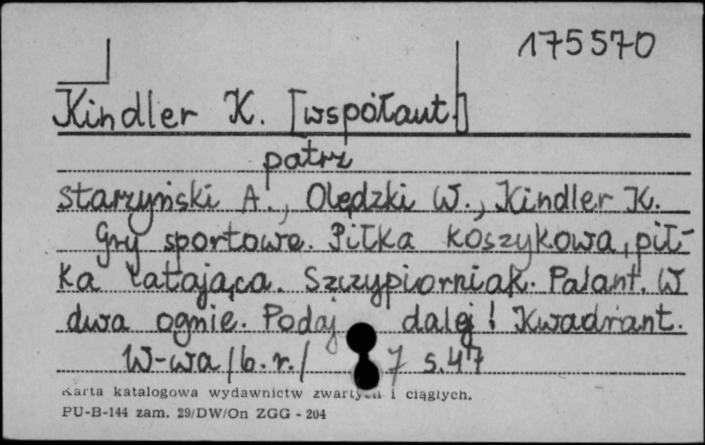 175570
Kindler K. [współaut.]
patrz
Starzyński A., Olędzki W., Kindler K.
Gry sportowe. Piłka koszykowa, pił-
ka latająca. Szczypiorniak. Palant. W
dwa ognie. Podaj dalej! Kwadrant.
W-wa /b.r./ 7 s. 47
Karta katalogowa wydawnictw zwartych i ciągłych.
PU-B-144 zam. 29/DW/On ZGG - 204